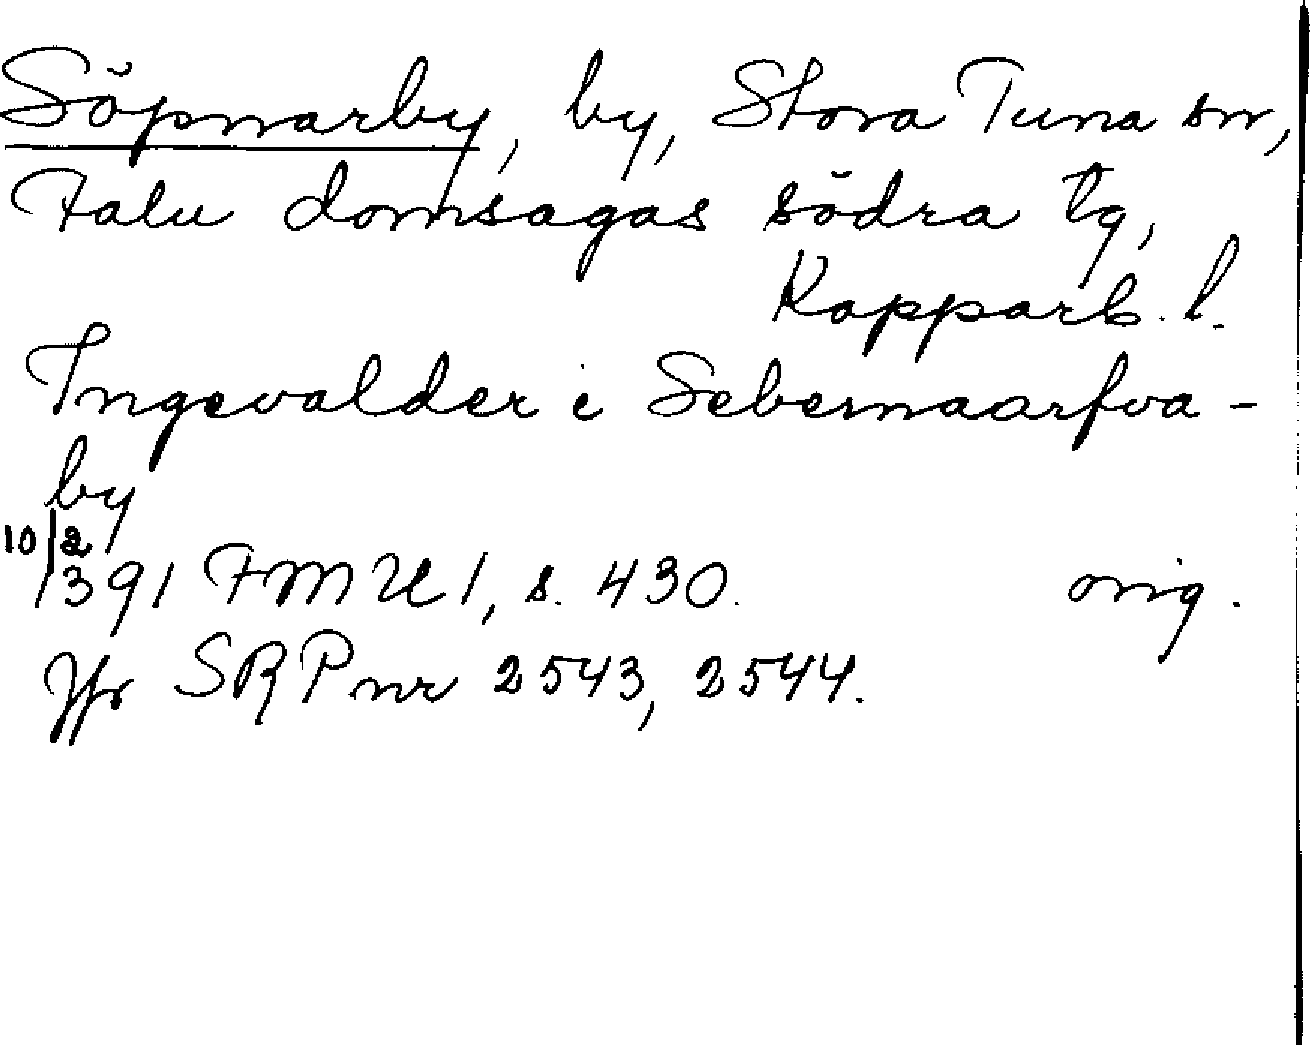 Söpnarby, by, Stora Tuna sn,
Falu domsagas södra tg,
Kopparb. l.
Ingevalder i Sebernaarfva-
by
10/2
1391 FMU 1, s. 430. orig.
Jfr SRP nr 2543, 2544.